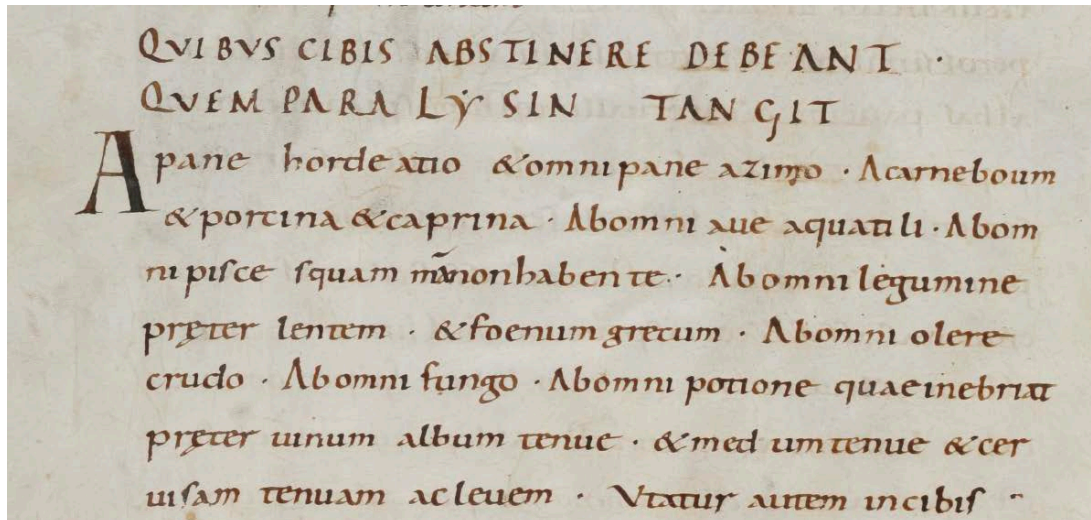 QVIBVS CIBIS ABSTINERE DEBEANT ·
QVEM PARALYSIN TANGIT
A pane hordeatio &omni pane azimo · A carne boum
& porcina & caprina · Ab omni aue aquatili · Ab om
ni pisce squam non habente · Ab omni legumine
pręter lentem · & foenum grecum · Ab omni olere
crudo · Ab omni fungo · Ab omni potione quae inebriat
pręter uinum album tenue · & med um tenue & cer
uisam tenuam ac leuem · Vtatur autem in cibis